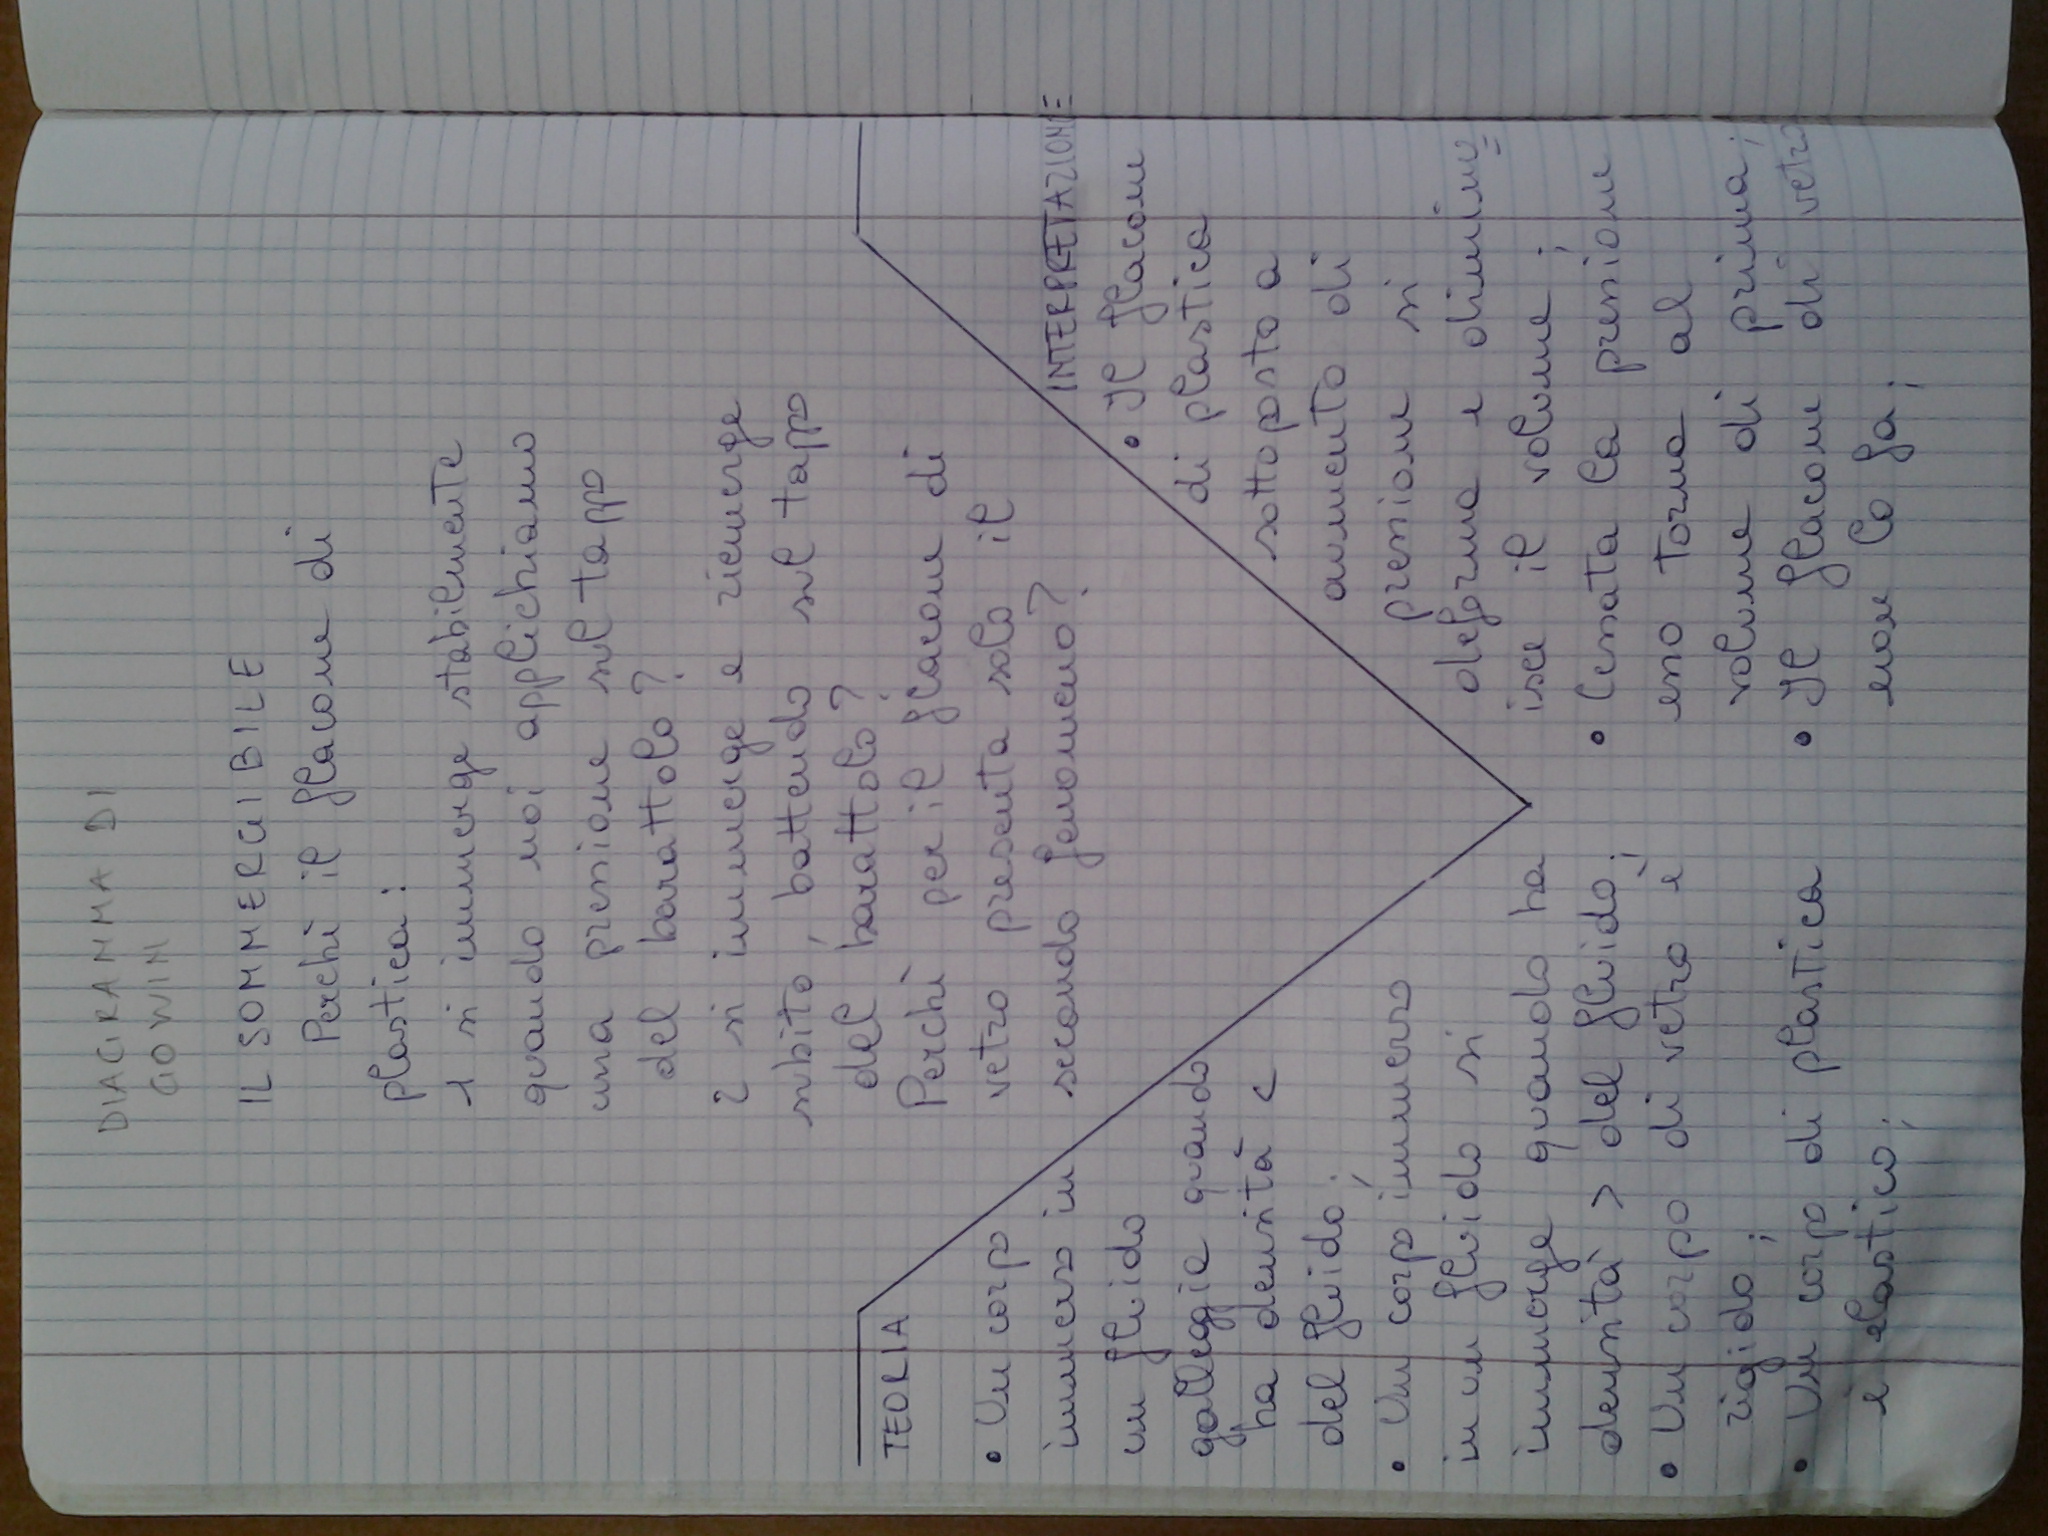 DIAGRAMMA DI
GOWIN
IL SOMMERGIBILE
Perchè il flacone di
plastica:
1 si immerge stabilmente
quando noi applichiamo
una pressione sul tappo
del barattolo?
2 si immerge e riemerge
subito, battendo sul tappo
del barattolo?
Perchè per il flacone di
vetro presenta solo il
secondo fenomeno?
TEORIA
• Un corpo
immerso in
un fluido
galleggia quando
ha densità <
del fluido;
• Un corpo immerso
in un fluido si
immerge quando ha
densità > del fluido;
• Un corpo di vetro è
rigido;
• Un corpo di plastica
è elastico;
INTERPRETAZIONE
• Il flacone
di plastica
sottoposto a
aumento di
pressione si
deforma e diminu=
isce il volume;
• Cessata la pressione
esso torna al
volume di prima;
• Il flacone di vetro
non lo fa;